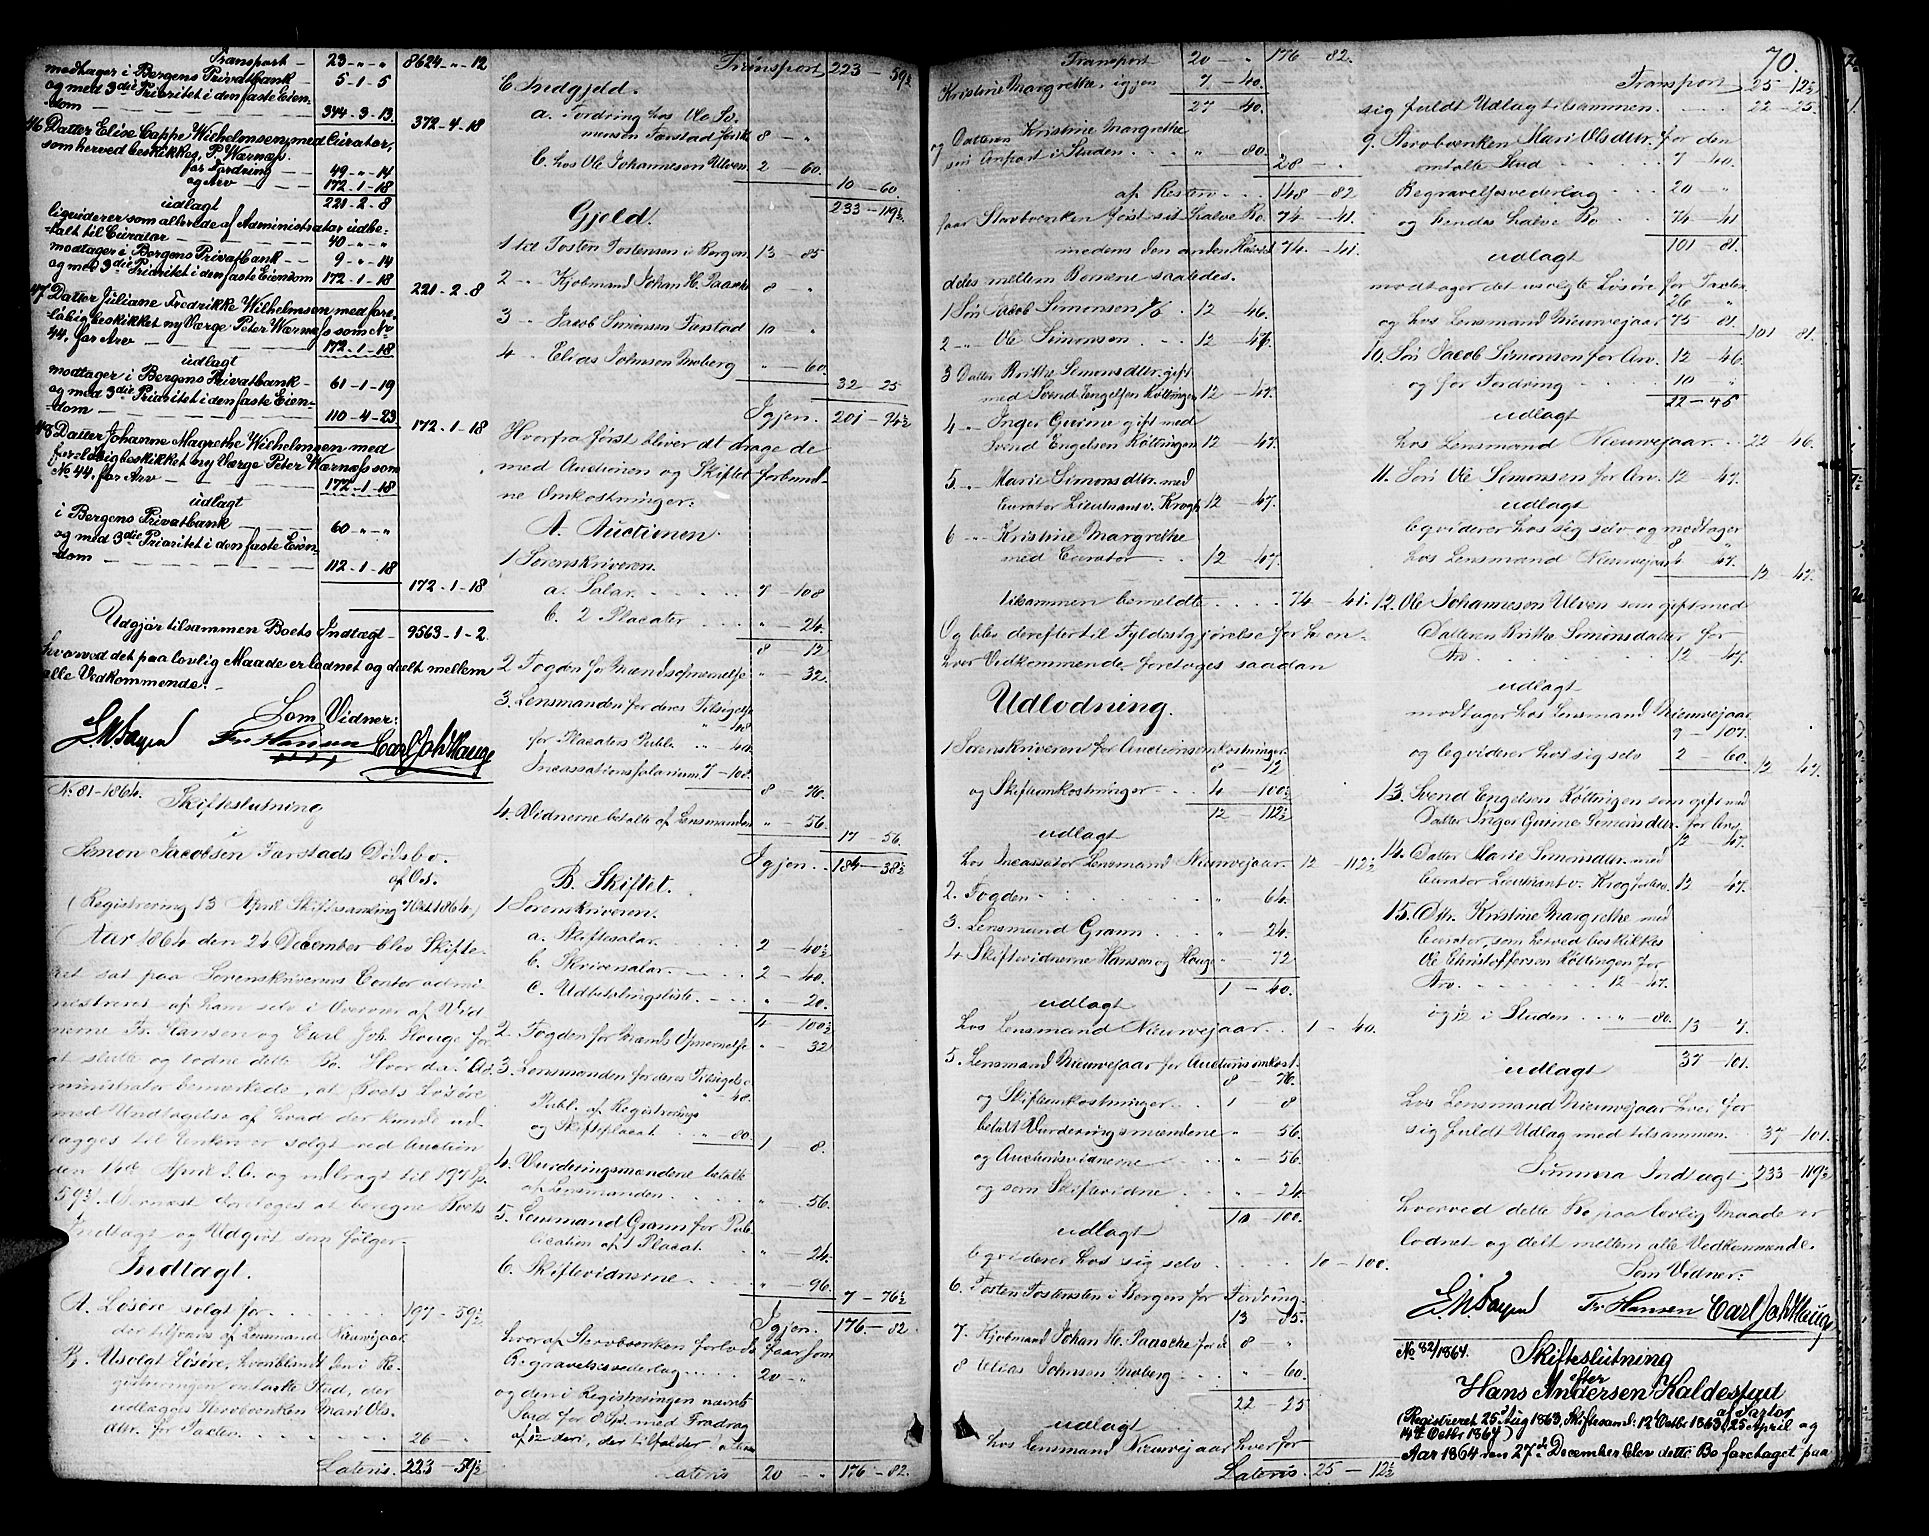 Transport - 23 - " - " 8624 - " - 12
modtager i Bergens Privatbank - 5 - 1 - 5
og med 3die Prioritet i den faste Eien-
dom - 344 - 3 - 13.
372 - 4 - 18
46 Datter Elise Cappe Wilhelmsen, med Curator,
som herved beskikkes, P. Warnæs.
for Fordring - 49 - " - 14
og Arv - 172 - 1 - 18
udlagt 221 - 2 - 8
liqviderer som allerede af Administrator udbe-
talt til Curator - 40 - " - "
modtager i Bergens Privatbank - 9 - " - 14
og med 3die Prioritet i den faste Eiendom 172 - 1 - 18
221 - 2 - 8
47 Datter Juliane Fredrikke Wilhelmsen med fore-
løbig beskikket ny Værge Peter Warnæs som No
44. for Arv - 172 - 1 - 18
udlagt
modtager i Bergens Privatbank - 61 - 1 - 19
og med 3die Prioritet i den faste Eien-
dom - 110 - 4 - 23
172 - 1 - 18
48 Datter Johanne Magrethe Wilhelmsen med
foreløbig beskikket ny Værge Peter Warnæs som
No 44. for Arv - 172 - 1 - 18
udlagt
i Bergens Privatbank - 60 - " - "
og med 3die Prioritet i den faste Eien-
dom - 112 - 1 - 18
172 - 1 - 18
Udgjør tilsammen Boets Indtægt - 9563 - 1 - 2.
hvorved det paa lovlig Maade er lodnet og deelt mellem
alle Vedkommende. -
Som Vidner:
Fr. Hansen Carl Joh Hauge
No 81 - 1864. Skifteslutning
i
Simon Jacobsen Farstads Dødsbo.
af Os.
(Registrering 13 April Skiftesamling 7 Okt 1864.)
Aar 1864 den 24 December blev Skifte-
ret sat paa Sorenskriverens Contor admi-
nistreret af ham selv i Overvær af Vid-
nerne Fr. Hansen og Carl Joh. Hauge for
at slutte og lodne dette Bo. Hvorda: Ad-
ministrator bemærkede, at Boets Løsøre
med Undtagelse af hvad der kunde ud-
lægges til Enken er solgt ved Auction
den 14de April d. A. og udbragt til 197 Sp.
59½ß. Dernæst foretoges at beregne Boets
Indtægt og Udgivt som følger.
Indtægt.
A. Løsøre solgt for . . . 197 - 59½
der tilsvares af Lensmand Nieuwejaar
B. Usolgt Løsøre, hvoriblandt den i Re-
gistreringen omtalte Hud, der
udlægges Stervboenken Mari Ols-
dtr. for Taxten . . . 26 "
Lateris. 223 - 59½
Transport 223 - 59½
C. Indgjeld.
a. Fordring hos Ole Si-
monsen Farstad 8 - "
b. hos Ole Johannesen Ulven 2 - 60.
10 - 60
233 - 119½
Gjeld.
1 til Tosten Tostensen i Bergen 13 - 85
2 " Kjøbmand Johan H. Paasche 8 - "
3 " Jacob Simonsen Farstad 10 - "
4 " Elias Johnsen Moberg " - 60.
32 - 25
Igjen. 201 - 94½
Hvorfra først bliver at drage de
med Auctionen og Skiftet forbund-
ne Omkostninger:
A. Auctionen.
1 Sorenskriveren.
a. Salar . . . 7 - 108
b. 2 Placater . . . " - 24.
8 12
2 Fogden for Mændsopnævnelse " - 32.
3. Lensmanden for deres Tilsigelse
" 48
for Placaters Publ. " 40.
Incassationssalarium 7 - 108.
8 - 76.
4. Vidnerne betalte af Lensmanden " - 56.
17 - 56.
Igjen. 184 - 38½
B. Skiftet.
1 Sorenskriveren.
a. Skiftesalar. 2 - 40½
b. Skrivesalar. 2 - 40.
c. Udbetalingsliste. " - 20.
4 - 100½
2. Fogden for Mænds Opnævnelse " - 32
3. Lensmanden for deres Tilsigelse
" 48.
Publ. af Registrerings
og Skifteplacat. " 80.
1 - 8.
4. Vurderingsmændene betalte
af Lensmanden . . . " 56.
5. Lensmand Grann for Pub-
lication af 1 Placat. " - 24.
6. Skiftevidnerne . . . " - 96.
7 - 76½
Igjen. 176 - 82
hvoraf Stervboenken forlods faar som
Begravelsesvederlag . . . 20 - "
og den i Registreringen nævnte
Hud for 8 Sp. med Fradrag
af ½ deri, der tilfalder Datteren
Lateris 20 - " 176 - 82.
70
Transport 20 - " 176 - 82.
Kristine Margrethe. igjen 7 - 40.
27 - 40.
og Datteren Kristine Margrethe
sin Anpart i Studen . . . " 80.
28 "
af Resten . . . 148 - 82
faar Stervboenken først sit halve Bo. 74 - 41.
medens den anden Halvdel 74 - 41.
deles mellem Børnene saaledes.
1 Søn Jacob Simonsen . 12 - 46.
2 " Ole Simonsen . . . 12 - 47.
3 Datter Britha Simonsdtr. gift
med Svend Engelsen Køttingen 12 - 47.
4 " Inger Gurine gift med
Svend Engelsen Køttingen 12 - 47.
5 " Marie Simonsdtr. med
Curator Lieutnant v. Krogh 12 - 47.
6 " Kristine Margrethe
med Curator . . . 12 - 47.
tilsammen bemeldte . . . 74 - 41.
Og blev derefter til Fyldestgjørelse for hver en-
hver Vedkommende foretaget saadan
Udlodning.
1 Sorenskriveren for Auctionsomkostninger.
8 - 12
og Skifteomkostninger . . 4 - 100½
12 - 112½
udlagt
hos Incassator Lensmand Nieuwejaar. 12 - 112½
2. Fogden . . . " 64.
3. Lensmand Grann . . . " - 24.
4 Skiftevidnerne Hansen og Hauge " - 72
1 - 40.
udlagt
hos Lensmand Nieuwejaar . . 1 - 40.
5. Lensmand Nieuwejaar for Auctionsomkost.
8 - 76.
og Skifteomkostninger . . 1 8
betalt Vurderingsmændene " 56.
og Auctionsvidnerne . . " - 56.
og som Skiftevidne . . " - 24.
10 - 100.
udlagt
liqviderer hos sig selv . . . 10 - 100.
6. Tosten Tostensen i Bergen for Fordring.
13 - 85.
7. Kjøbmand Johan H. Paasche for d: 8 - "
8 Elias Johnsen Moberg . . . " - 60.
22 - 25
udlagt
hos Lensmand Nieuwejaar hver for
Lateris. 25 - 12½
Transport 25 - 12½
sig fuldt Udlæg tilsammen . . . 22 - 25.
9. Stervboenken Mari Olsdtr. for den
omtalte Hud . . . 7 40.
Begravelsesvederlag . . 20 - "
og hendes halve Bo . . . 74 - 41
101 - 81.
udlagt
modtager det usolgte Løsøre for Taxten
26 "
og hos Lensmand Nieuwejaar 75 81.
101 81.
10. Søn Jacob Simonsen for Arv. 12 - 46
og for Fordring . . . 10 - "
22 - 46
udlagt
hos Lensmand Nieuwejaar . . 22 - 46.
11. Søn Ole Simonsen for Arv. 12 - 47.
udlagt
liqviderer hos sig selv og modtager
8 "
hos Lensmand Nieuwejaar 4 47.
12 - 47.
12. Ole Johannesen Ulven som gift med
Datteren Britha Simonsdatter for
Arv . . . 12 - 47.
udlagt
modtager hos Lensmand Nieuwejaar
9 - 107.
og liqviderer hos sig selv 2 - 60.
12 - 47.
13. Svend Engelsen Køttingen som gift med
Datter Inger Gurine Simonsdtr. for Arv
12 - 47.
14. Datter Marie Simonsdtr. med
Curator Lieutnant v. Krogh for do. 12 - 47.
15. Dttr. Kristine Margrethe med
Curator, som herved beskikkes
Ole Christoffersen Køttingen for
Arv . . . 12 - 47.
og ½ i Studen . . " - 80. 13 - 7.
37 - 101.
udlagt
hos Lensmand Nieuwejaar hver for
sig fuldt Udlæg med tilsammen . . 37 - 101.
Summa Indtægt 233 - 119½
hvorved dette Bo paa lovlig Maade er
lodnet og delt mellem alle Vedkommende.
Som Vidner:
Fr. Hansen Carl Joh Hauge
No 82/1864. Skifteslutning
efter
Hans Andersen Kaldestad
af Sartor
(Registreret 25 Aug 1863, Skiftesaml: 12 Octbr 1863, 25 April og
14de Octbr 1864)
Aar 1864 den 27de December blev dette Bo foretaget paa